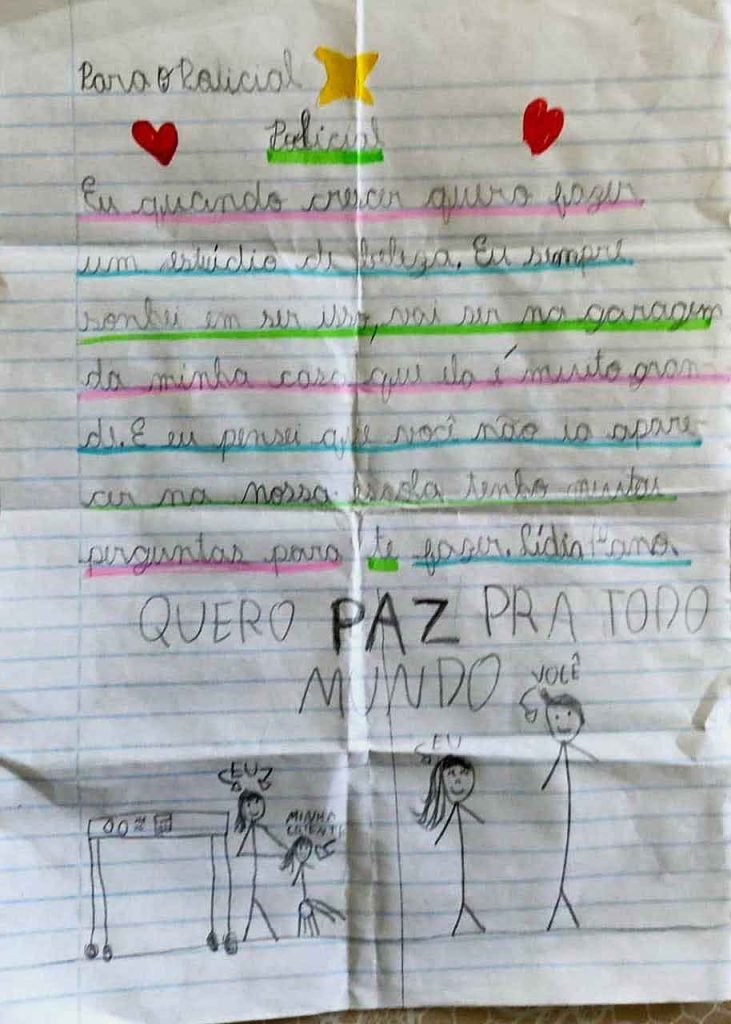 Para o Policial
Policial
Eu quando crescer quero fazer
um estúdio de beleza. Eu sempre
sonhei em ser isso, vai ser na garagem
da minha casa que ela é muito gran-
de. E eu pensei que você não ia apare-
cer na nossa escola tenho muitas
perguntas para te fazer. Lídia 4º ano.
QUERO PAZ PRA TODO
MUNDO
VOCÊ
EU
EU
MINHA
CLIENTE